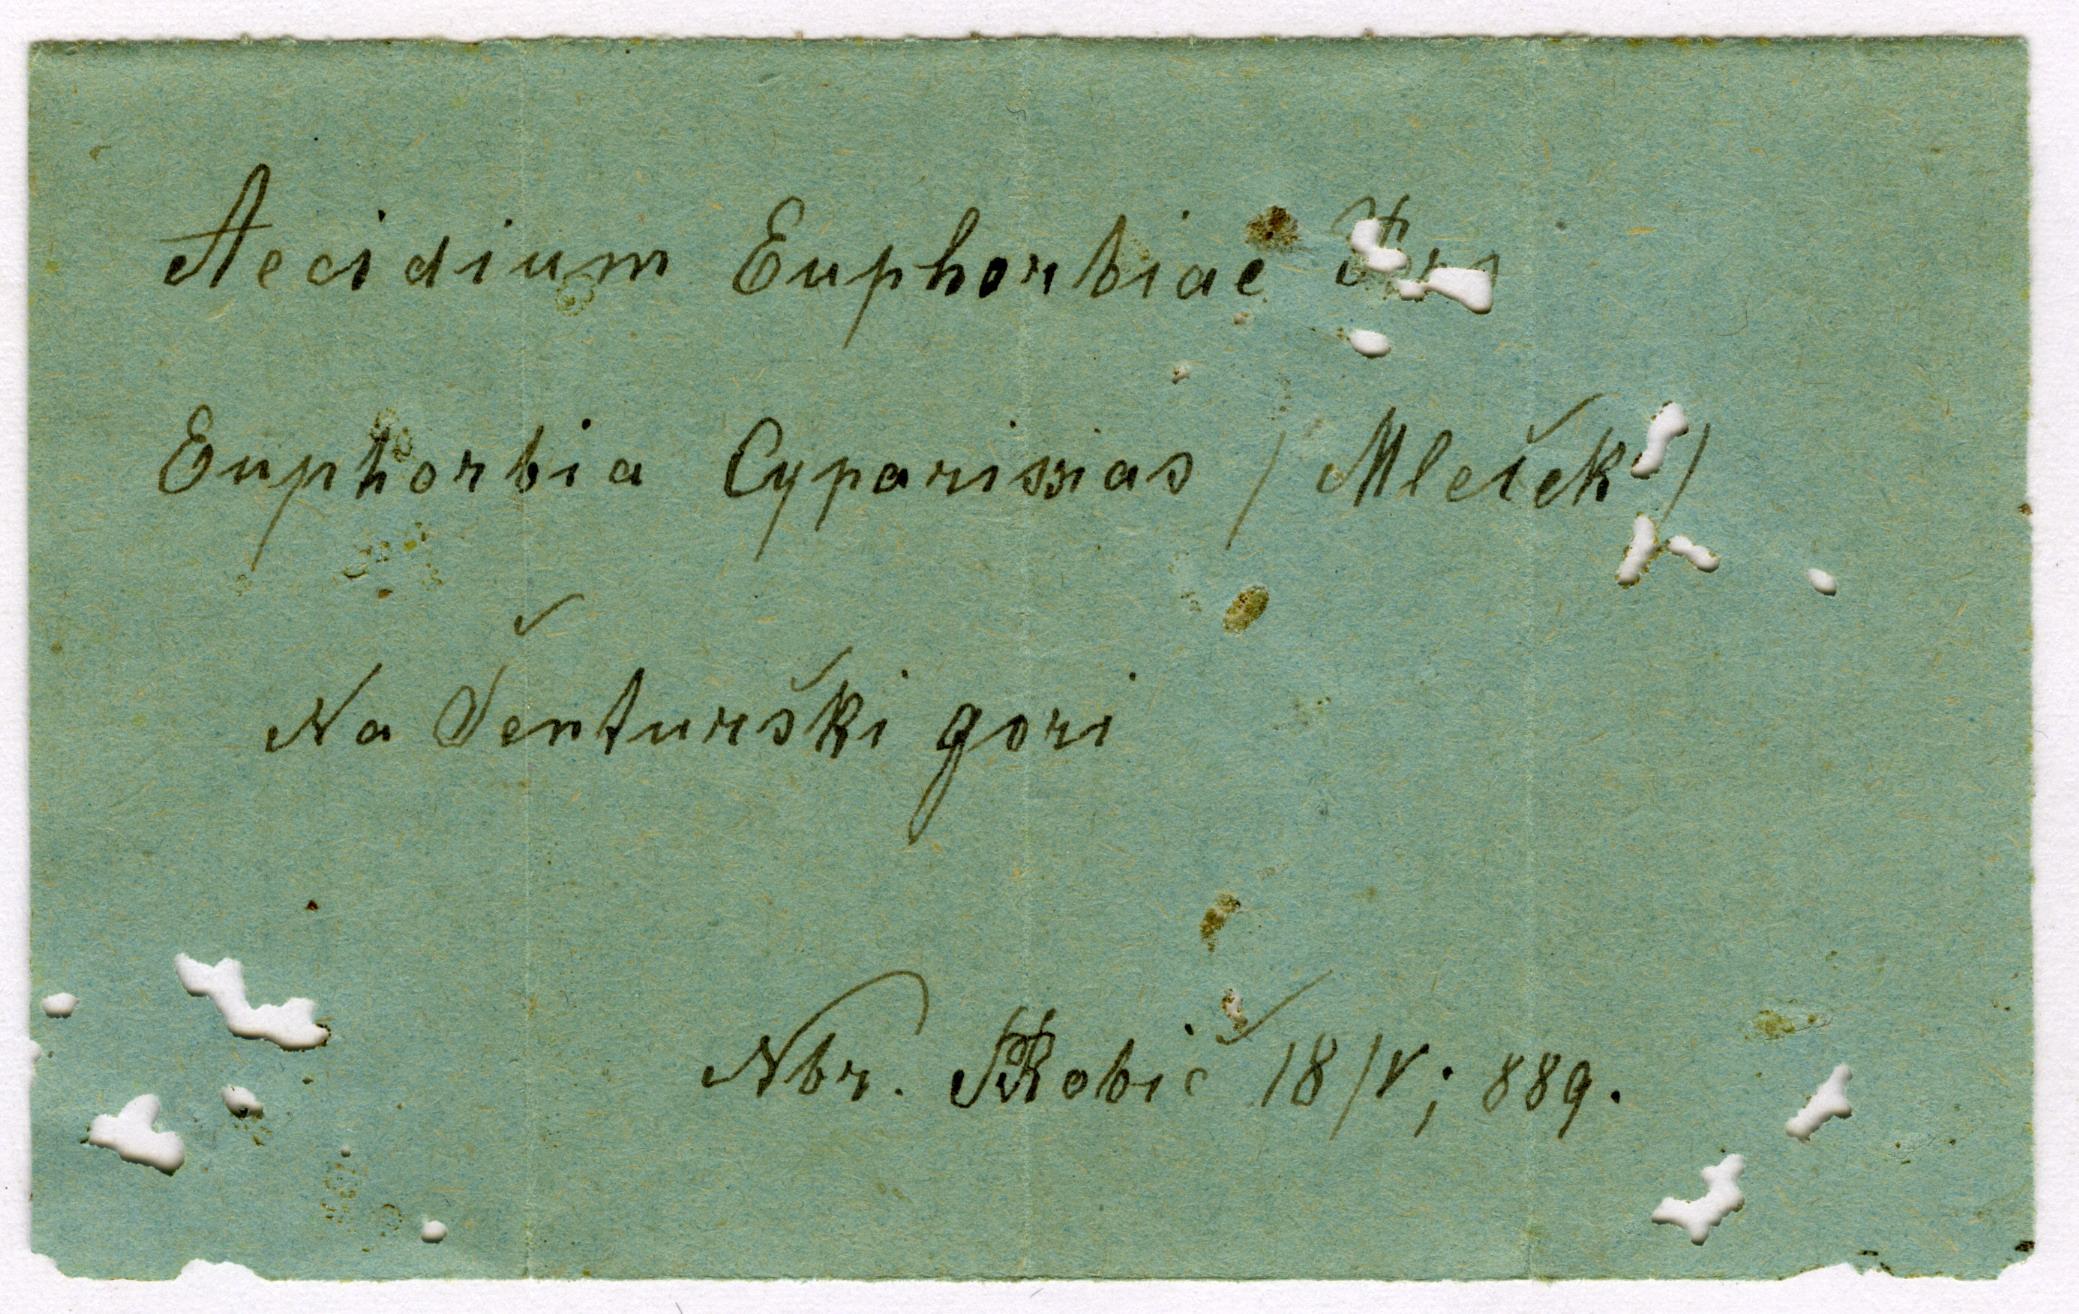 Aecidium Euphorbiae
Euphorbia Cyparissias / Mleček /
Na Šenturški gori
Nbr. SRobič 18/V; 889.